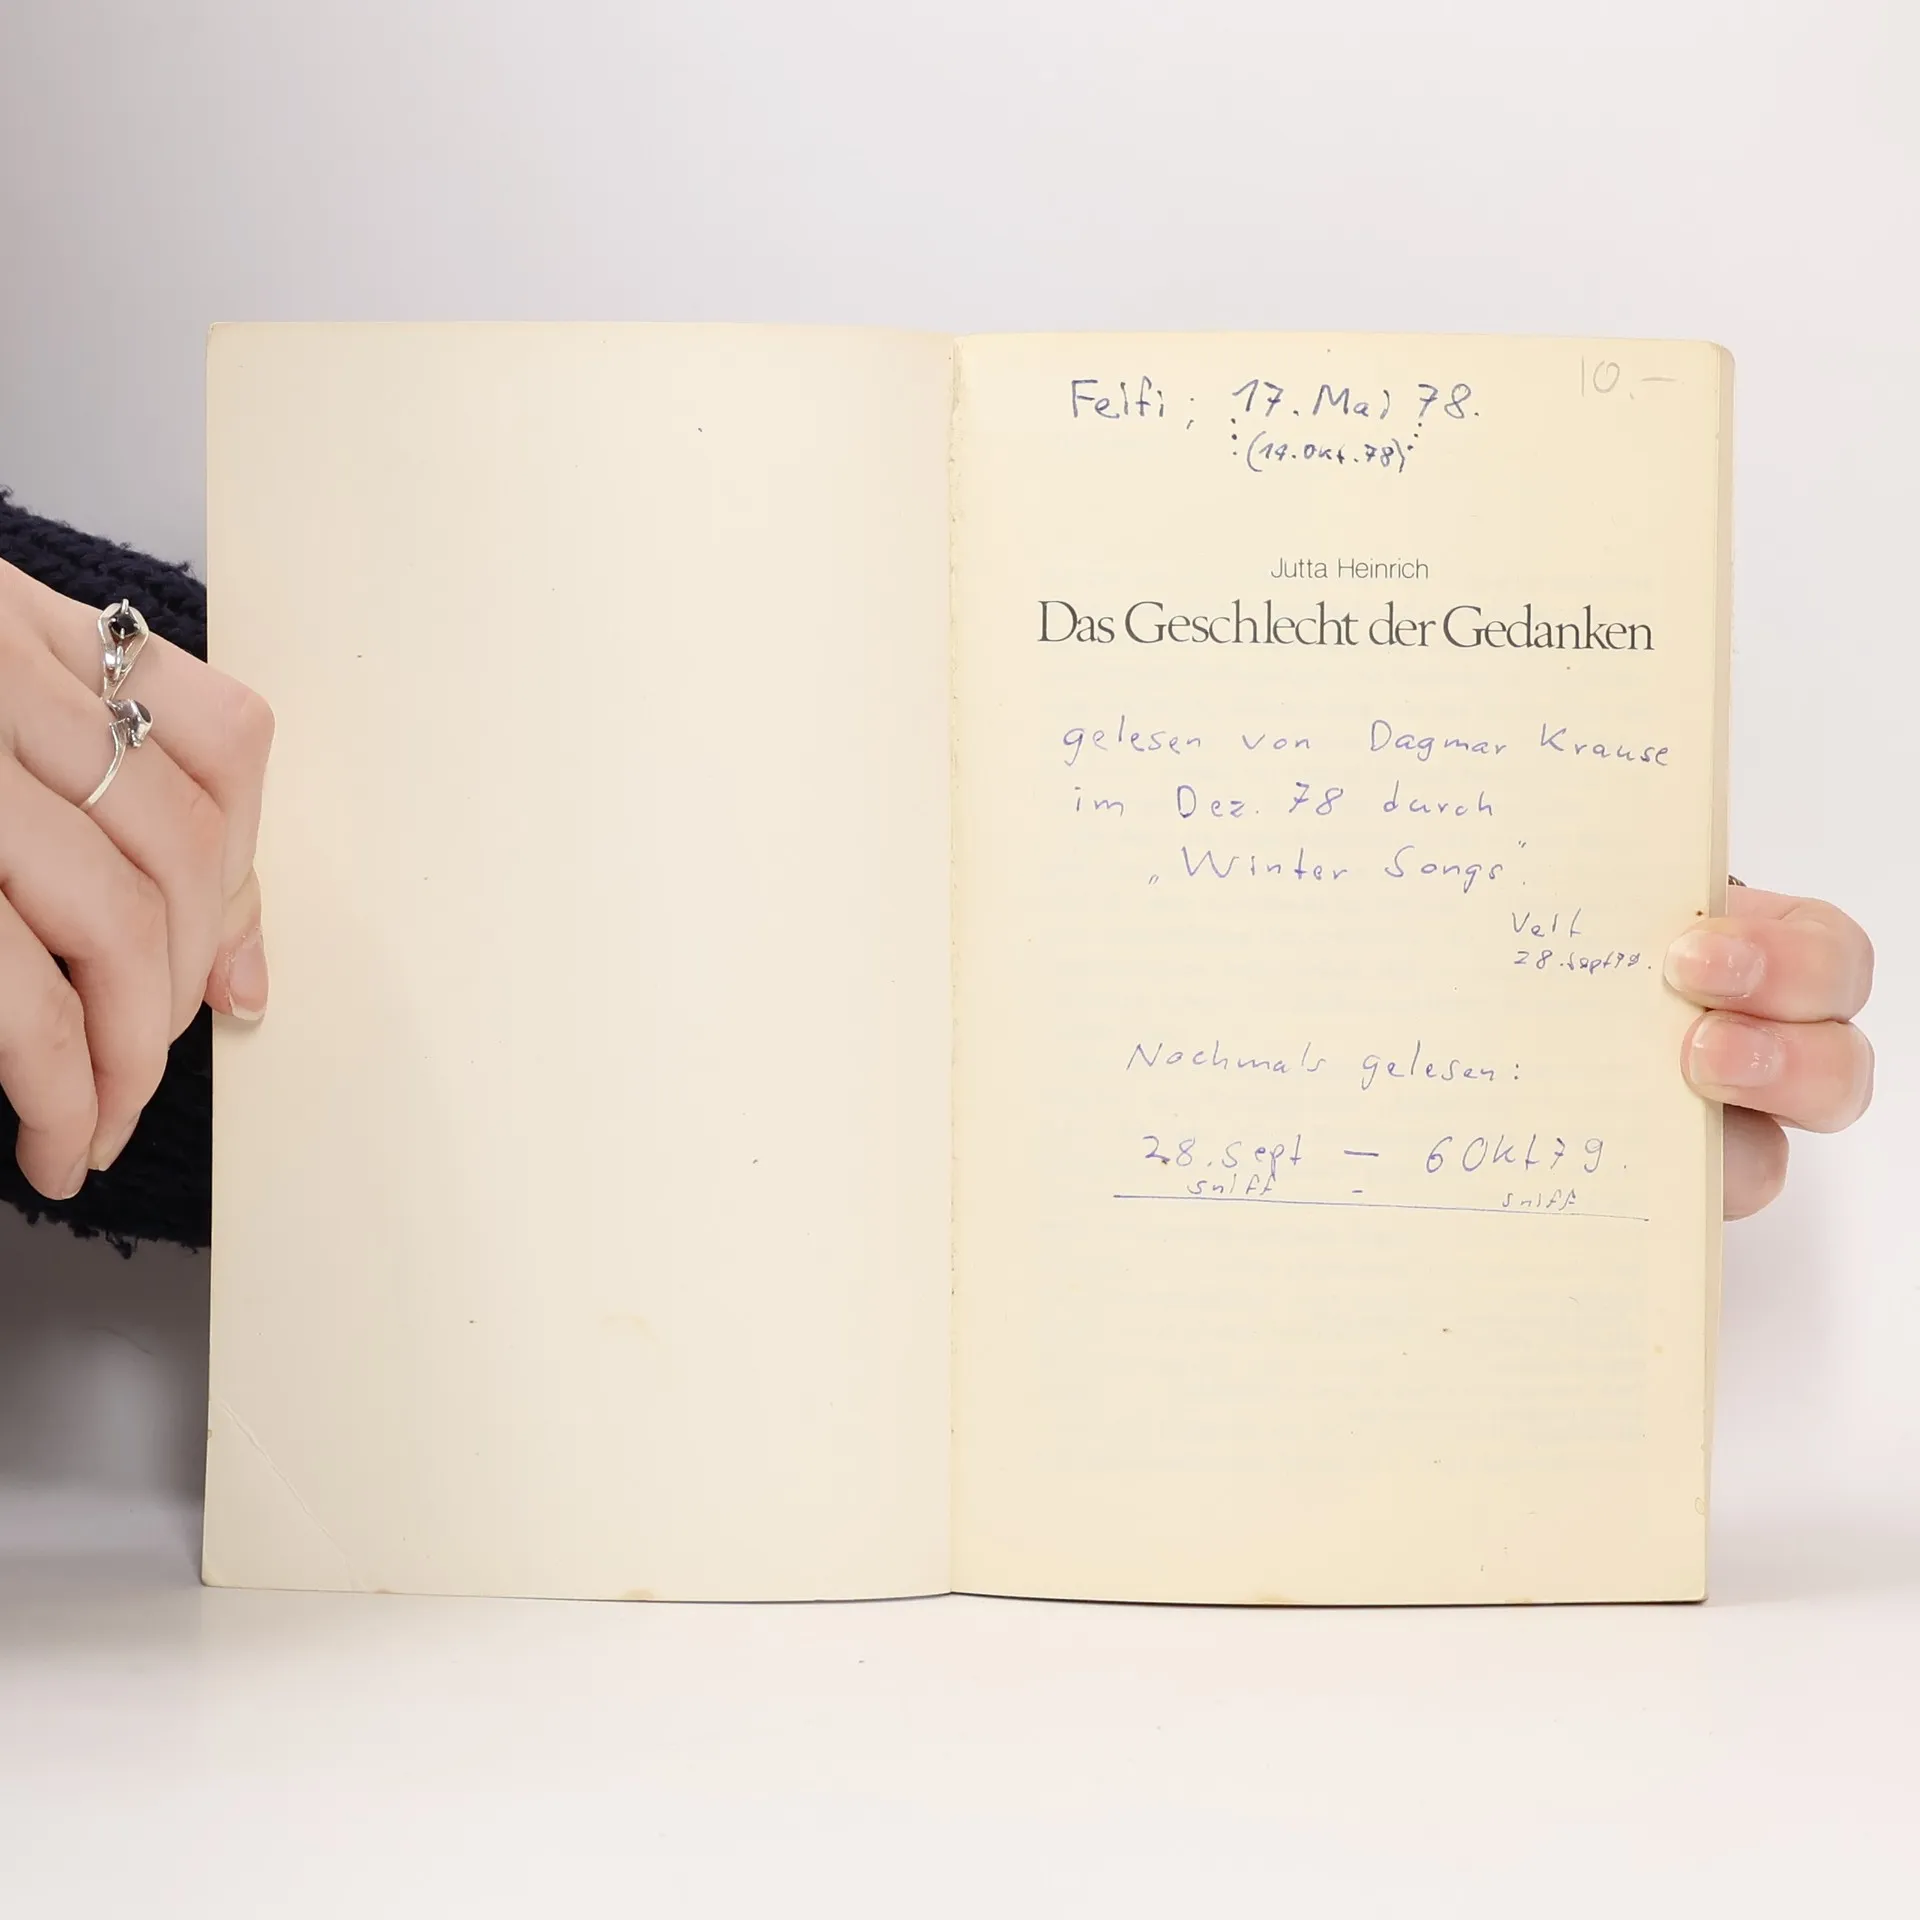 10.—
Felfi; 17. Mai 78.
(14. Okt. 78)
Jutta Heinrich
Das Geschlecht der Gedanken
gelesen von Dagmar Krause
im Dez. 78 durch
„Winter Songs".
Veit
28. Sept 79.
Nochmals gelesen:
28. Sept — 6 Okt 79.
sniff - sniff